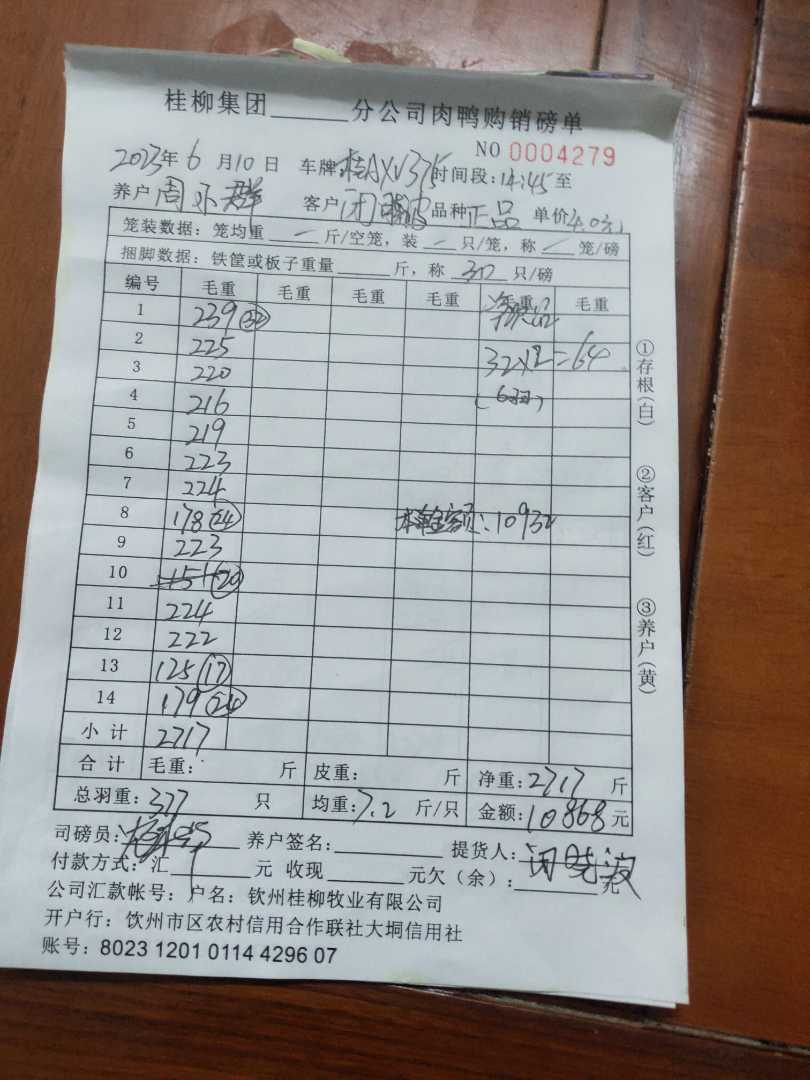 桂柳集团______分公司肉鸭购销磅单
NO 0004279
2023年6月10日 车牌桂AXV375时间段:14:45至
养户周 群 客户闭 波品种正品 单价4.0元
笼装数据:笼均重 一 斤/空笼,装 一 只/笼,称 一 笼/磅
捆脚数据:铁筐或板子重量______斤,称 30 只/磅
编号 毛重 毛重 毛重 毛重 毛重 毛重
1 239(32)
2 225 32×2=64
3 220
4 216
5 219
6 223
7 224
8 178(24) 本单金额:10932
9 223
10 151(20)
11 224
12 222
13 125(17)
14 179(24)
小计 2717
合计 毛重: 斤 皮重: 斤 净重:2717 斤
总羽重:377 只 均重:7.2 斤/只 金额:10868元
司磅员: 养户签名:________ 提货人:闭晓波
付款方式:汇______元 收现______元欠(余):______元
公司汇款帐号:户名:钦州桂柳牧业有限公司
开户行:饮州市区农村信用合作联社大垌信用社
账号:8023 1201 0114 4296 07
①存根(白)
②客户(红)
③养户(黄)